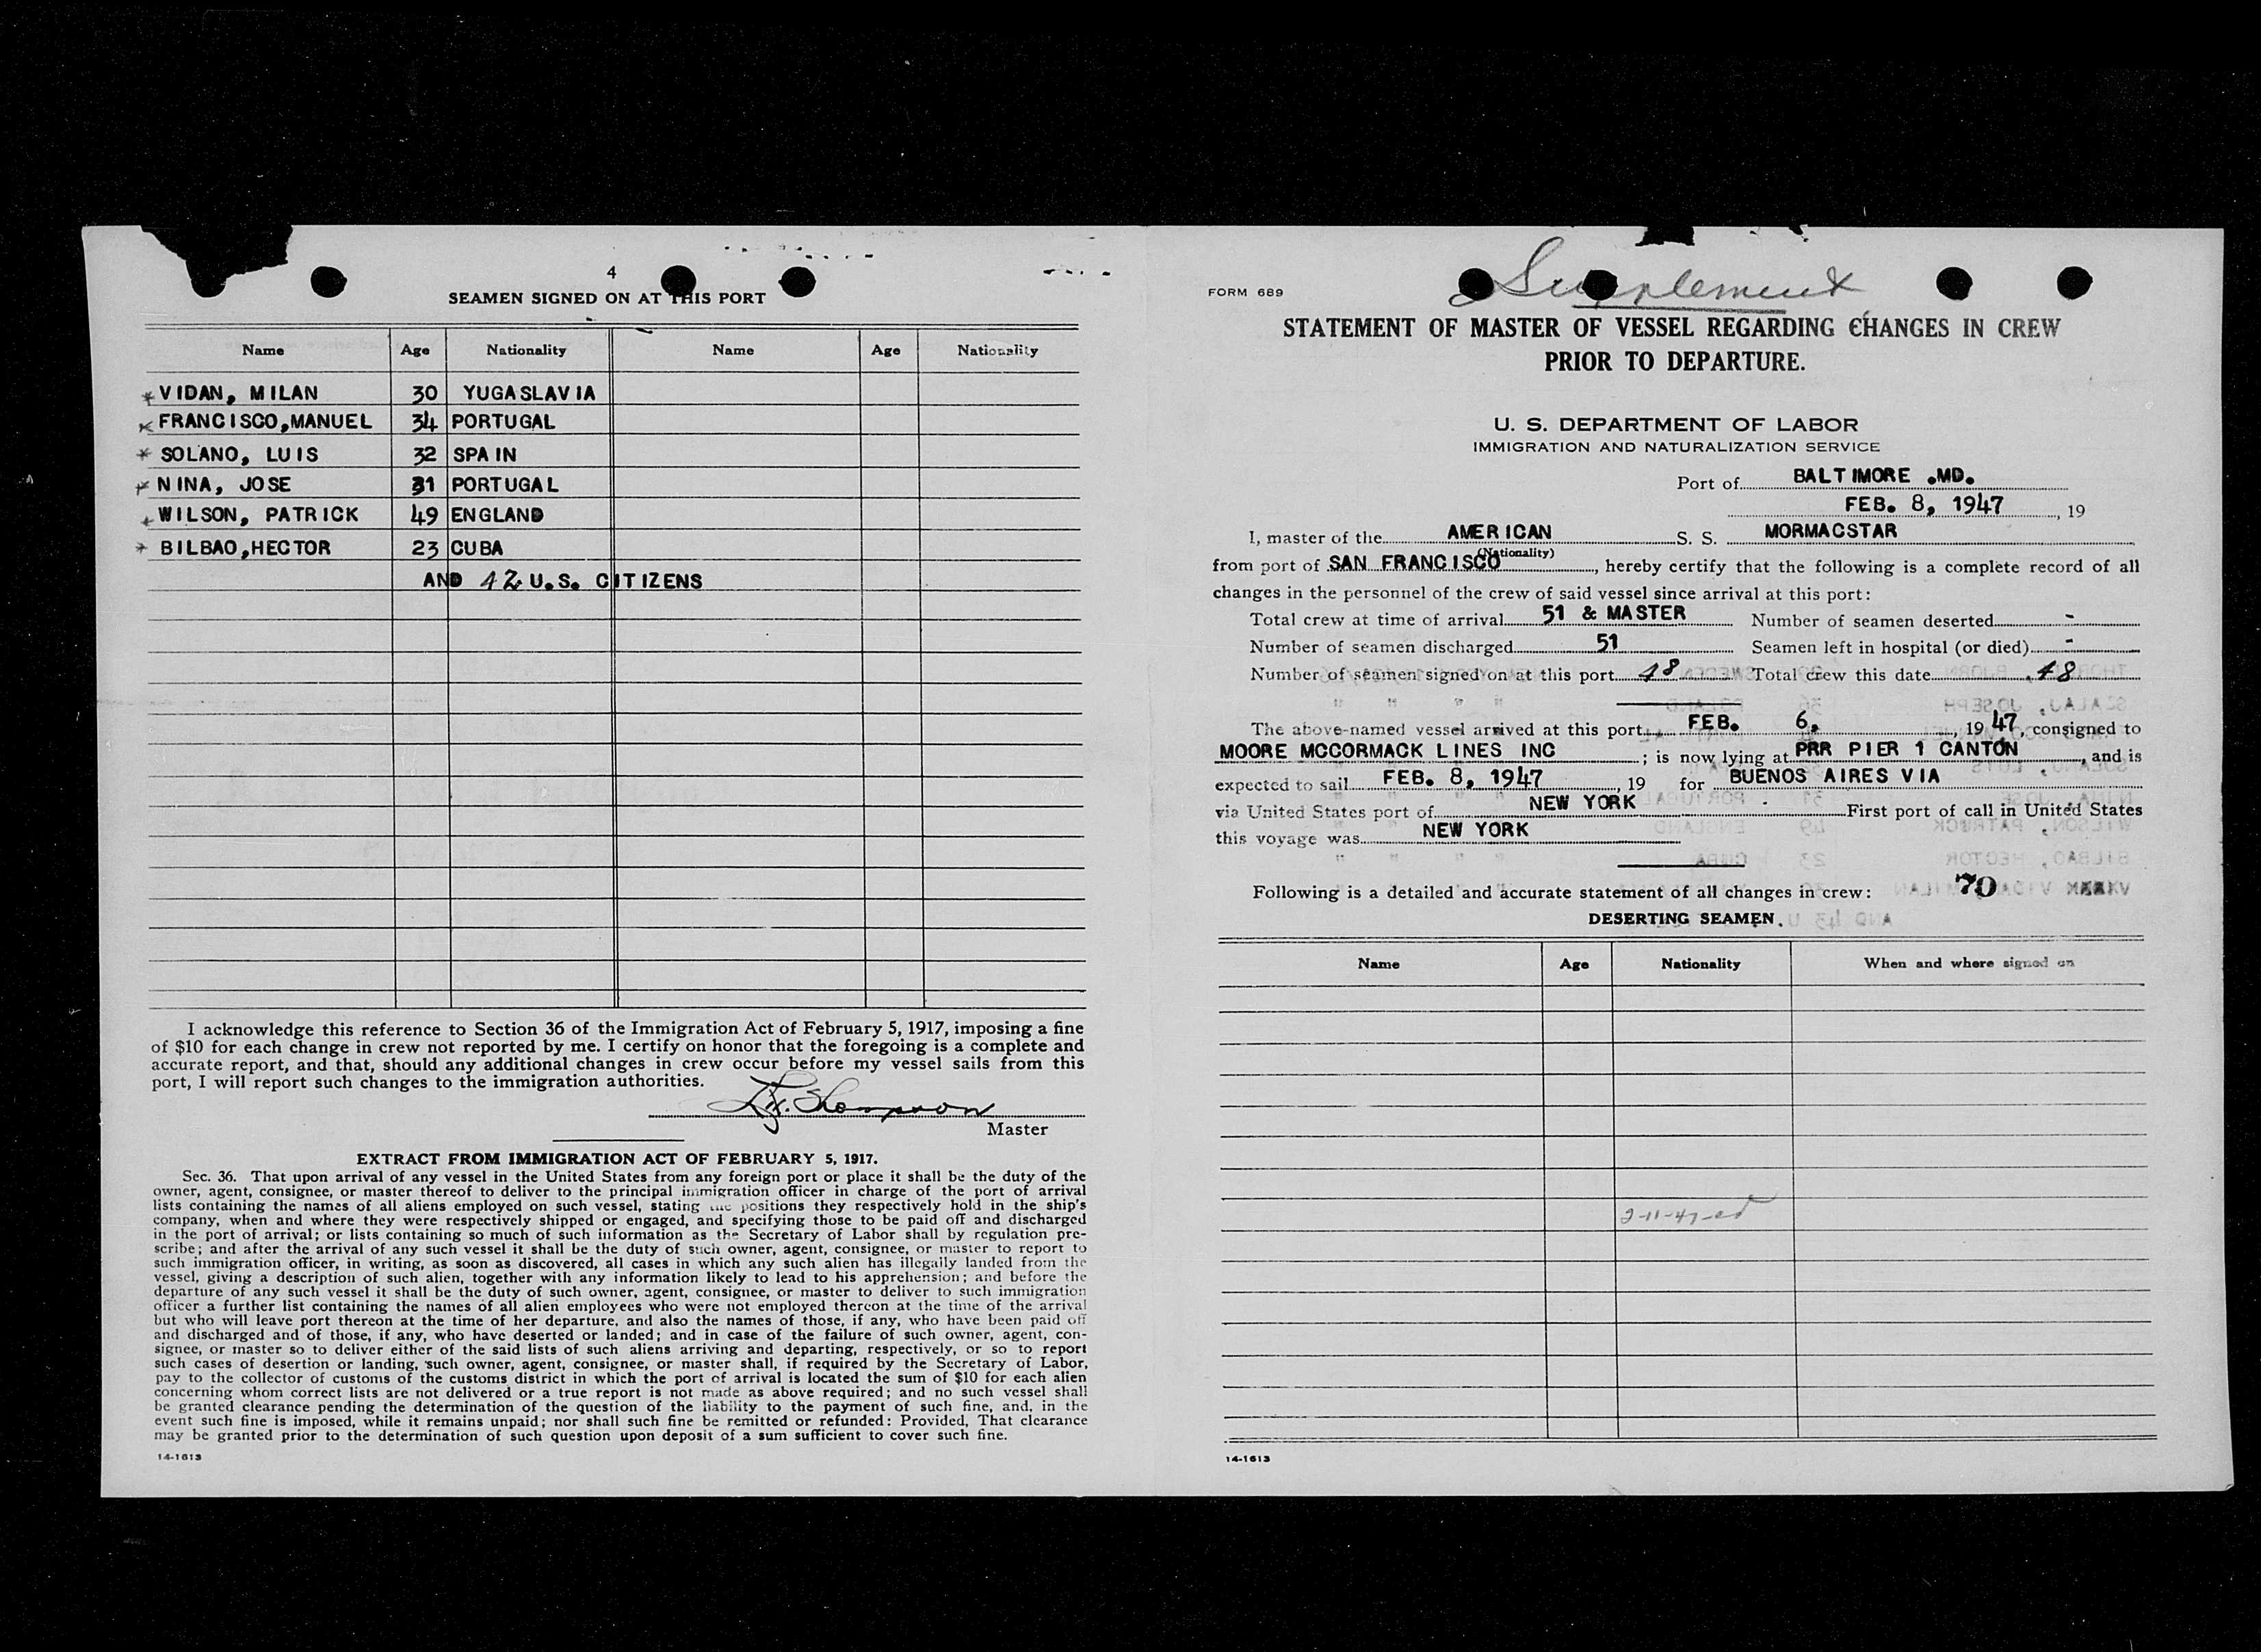 4
SEAMEN SIGNED ON AT THIS PORT
Name Age Nationality Name Age Nationality
* VIDAN, MILAN 30 YUGASLAVIA
* FRANCISCO,MANUEL 34 PORTUGAL
* SOLANO, LUIS 32 SPAIN
* NINA, JOSE 31 PORTUGAL
* WILSON, PATRICK 49 ENGLAND
* BILBAO,HECTOR 23 CUBA
AND 42 U.S. CITIZENS
I acknowledge this reference to Section 36 of the Immigration Act of February 5, 1917, imposing a fine
of $10 for each change in crew not reported by me. I certify on honor that the foregoing is a complete and
accurate report, and that, should any additional changes in crew occur before my vessel sails from this
port, I will report such changes to the immigration authorities.
Master
EXTRACT FROM IMMIGRATION ACT OF FEBRUARY 5, 1917.
Sec. 36. That upon arrival of any vessel in the United States from any foreign port or place it shall be the duty of the
owner, agent, consignee, or master thereof to deliver to the principal immigration officer in charge of the port of arrival
lists containing the names of all aliens employed on such vessel, stating the positions they respectively hold in the ship's
company, when and where they were respectively shipped or engaged, and specifying those to be paid off and discharged
in the port of arrival; or lists containing so much of such information as the Secretary of Labor shall by regulation pre-
scribe; and after the arrival of any such vessel it shall be the duty of such owner, agent, consignee, or master to report to
such immigration officer, in writing, as soon as discovered, all cases in which any such alien has illegally landed from the
vessel, giving a description of such alien, together with any information likely to lead to his apprehension; and before the
departure of any such vessel it shall be the duty of such owner, agent, consignee, or master to deliver to such immigration
officer a further list containing the names of all alien employees who were not employed thereon at the time of the arrival
but who will leave port thereon at the time of her departure, and also the names of those, if any, who have been paid off
and discharged and of those, if any, who have deserted or landed; and in case of the failure of such owner, agent, con-
signee, or master so to deliver either of the said lists of such aliens arriving and departing, respectively, or so to report
such cases of desertion or landing, such owner, agent, consignee, or master shall, if required by the Secretary of Labor,
pay to the collector of customs of the customs district in which the port of arrival is located the sum of $10 for each alien
concerning whom correct lists are not delivered or a true report is not made as above required; and no such vessel shall
be granted clearance pending the determination of the question of the liability to the payment of such fine, and, in the
event such fine is imposed, while it remains unpaid; nor shall such fine be remitted or refunded: Provided, That clearance
may be granted prior to the determination of such question upon deposit of a sum sufficient to cover such fine.
14-1613
Supplement
FORM 689
STATEMENT OF MASTER OF VESSEL REGARDING CHANGES IN CREW
PRIOR TO DEPARTURE.
U. S. DEPARTMENT OF LABOR
IMMIGRATION AND NATURALIZATION SERVICE
Port of BALTIMORE .MD.
FEB. 8, 1947, 19
I, master of the AMERICAN S. S. MORMACSTAR
(Nationality)
from port of SAN FRANCISCO, hereby certify that the following is a complete record of all
changes in the personnel of the crew of said vessel since arrival at this port:
Total crew at time of arrival 51 & MASTER Number of seamen deserted -
Number of seamen discharged 51 Seamen left in hospital (or died) -
Number of seamen signed on at this port 48 Total crew this date 48
The above-named vessel arrived at this port FEB. 6, 1947, consigned to
MOORE MCCORMACK LINES INC; is now lying at PRR PIER 1 CANTON, and is
expected to sail FEB. 8, 1947, 19 for BUENOS AIRES VIA
via United States port of NEW YORK First port of call in United States
this voyage was NEW YORK
Following is a detailed and accurate statement of all changes in crew: 70
DESERTING SEAMEN.
Name Age Nationality When and where signed on
2-11-47-ed
14-1613